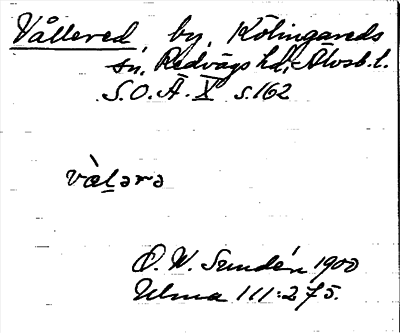 Vållered, by, Kölingareds
sn, Redvägs hd, Älvsb. l.
S.O.Ä. X s. 162
vàlərə
D. W. Sundén 1900
Ulma 111:275.